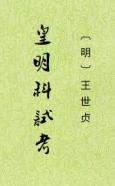 皇明科試考
〔明〕王世贞